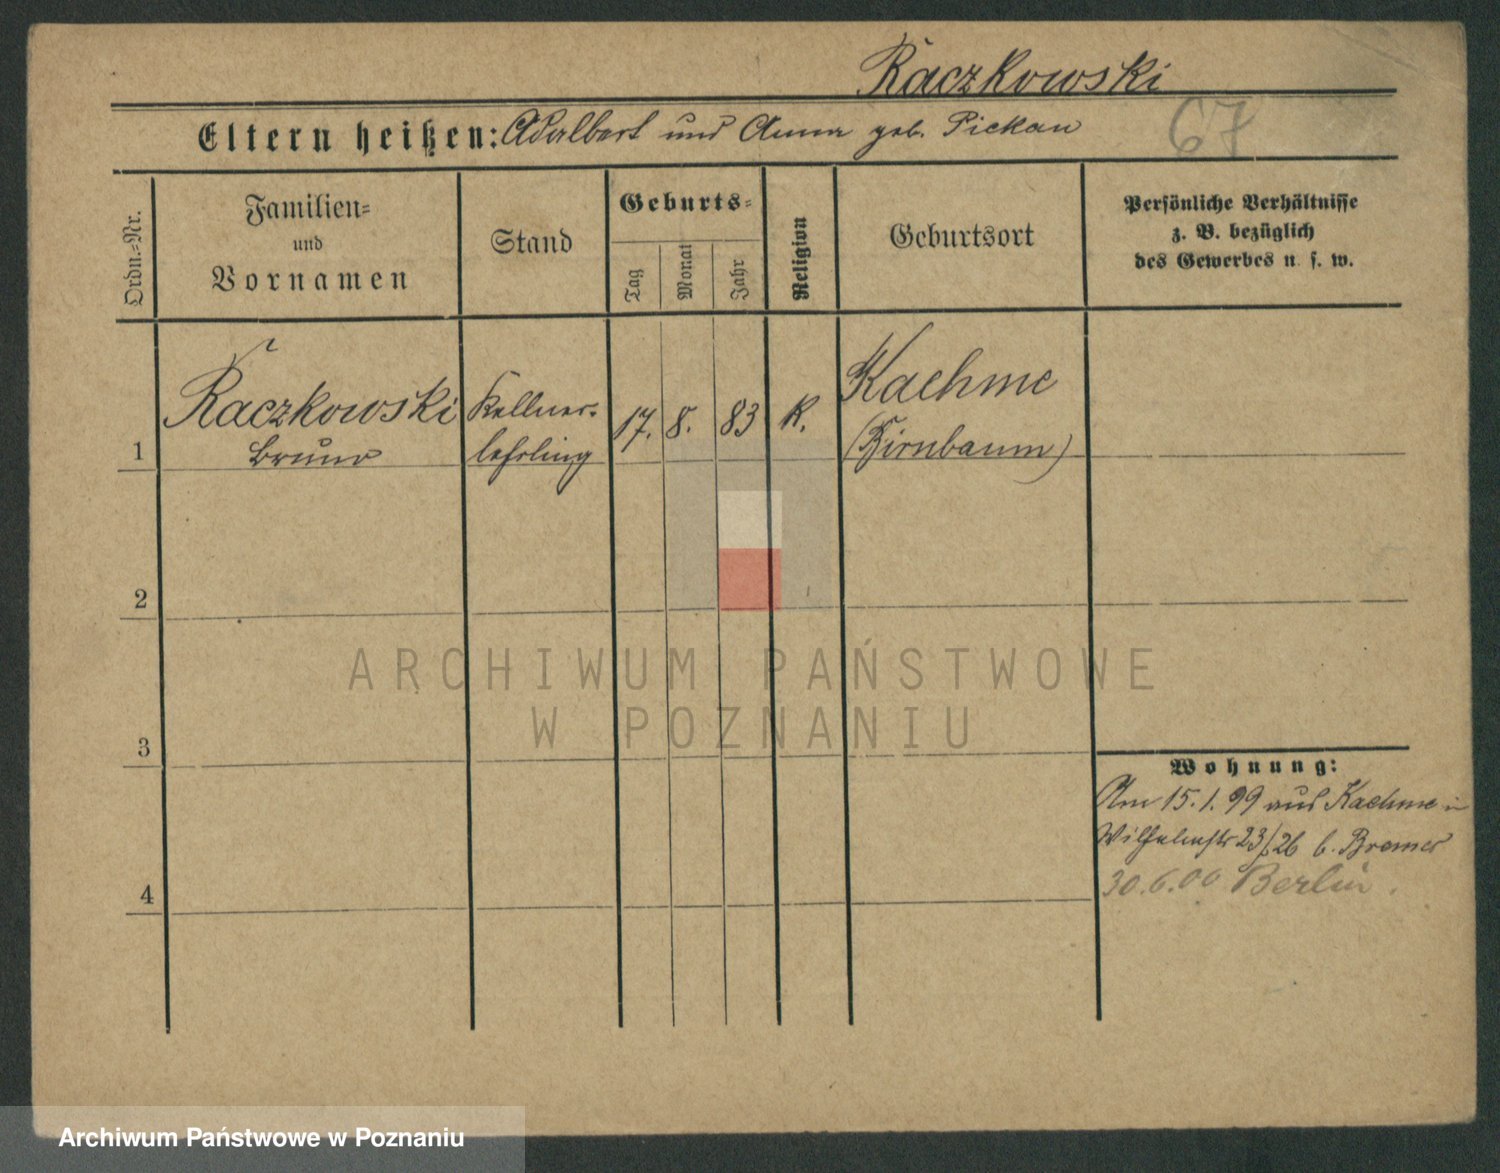 Raczkowski
Eltern heißen: Adalbert und Anna geb. Pickan
67
Ordn.-Nr.
Familien-
und
Vornamen
Stand
Geburts-
Tag
Monat
Jahr
Religion
Geburtsort
Persönliche Verhältnisse
z. B. bezüglich
des Gewerbes u. s. w.
1
Raczkowski
Bruno
Kellner-
lehrling
17. 8. 83
K.
Kaehme
(Birnbaum)
2
3
4
Wohnung:
Am 15.1.99 aus Kaehme in
Wilhelmstr 23/26 b. Bremer
30.6.00 Berlin.
ARCHIWUM PAŃSTWOWE
W POZNANIU
Archiwum Państwowe w Poznaniu